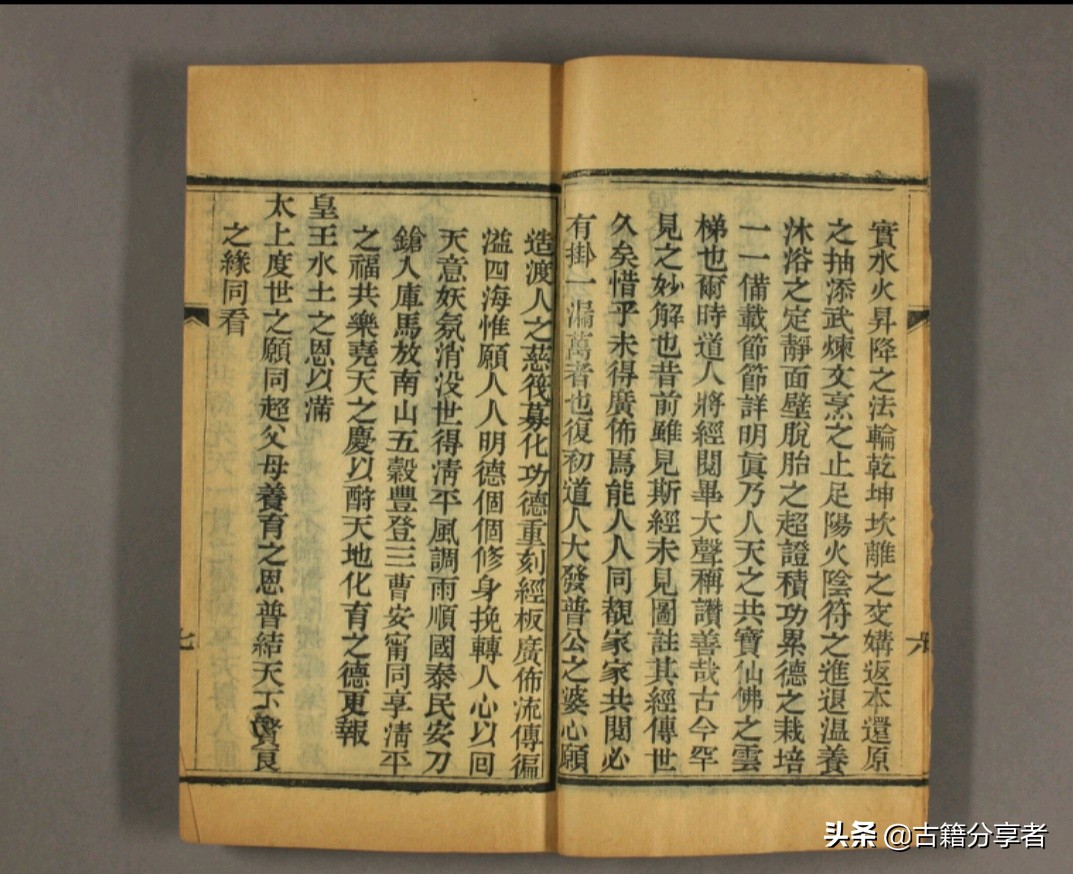 實水火昇降之法輪乾坤坎離之交媾返本還原
之抽添武煉文烹之止足陽火陰符之進退温養
沐浴之定靜面壁脫胎之超證積功累德之栽培
一一備載節節詳明眞乃人天之共寶仙佛之雲
梯也爾時道人將經閱畢大聲稱讚善哉古今罕
見之妙解也昔前雖見斯經未見圖註其經傳世
久矣惜乎未得廣佈焉能人人同覩家家共閱必
有掛一漏萬者也復初道人大發普公之婆心願
造渡人之慈筏募化功德重刻經板廣佈流傳徧
溢四海惟願人人明德個個修身挽轉人心以回
天意妖氛消没世得清平風調雨順國泰民安刀
鎗入庫馬放南山五穀豐登三曹安甯同享清平
之福共樂堯天之慶以酧天地化育之德更報
皇王水土之恩以滿
太上度世之願同超父母養育之恩普結天下賢良
之緣同看
六
七
头条 @古籍分享者